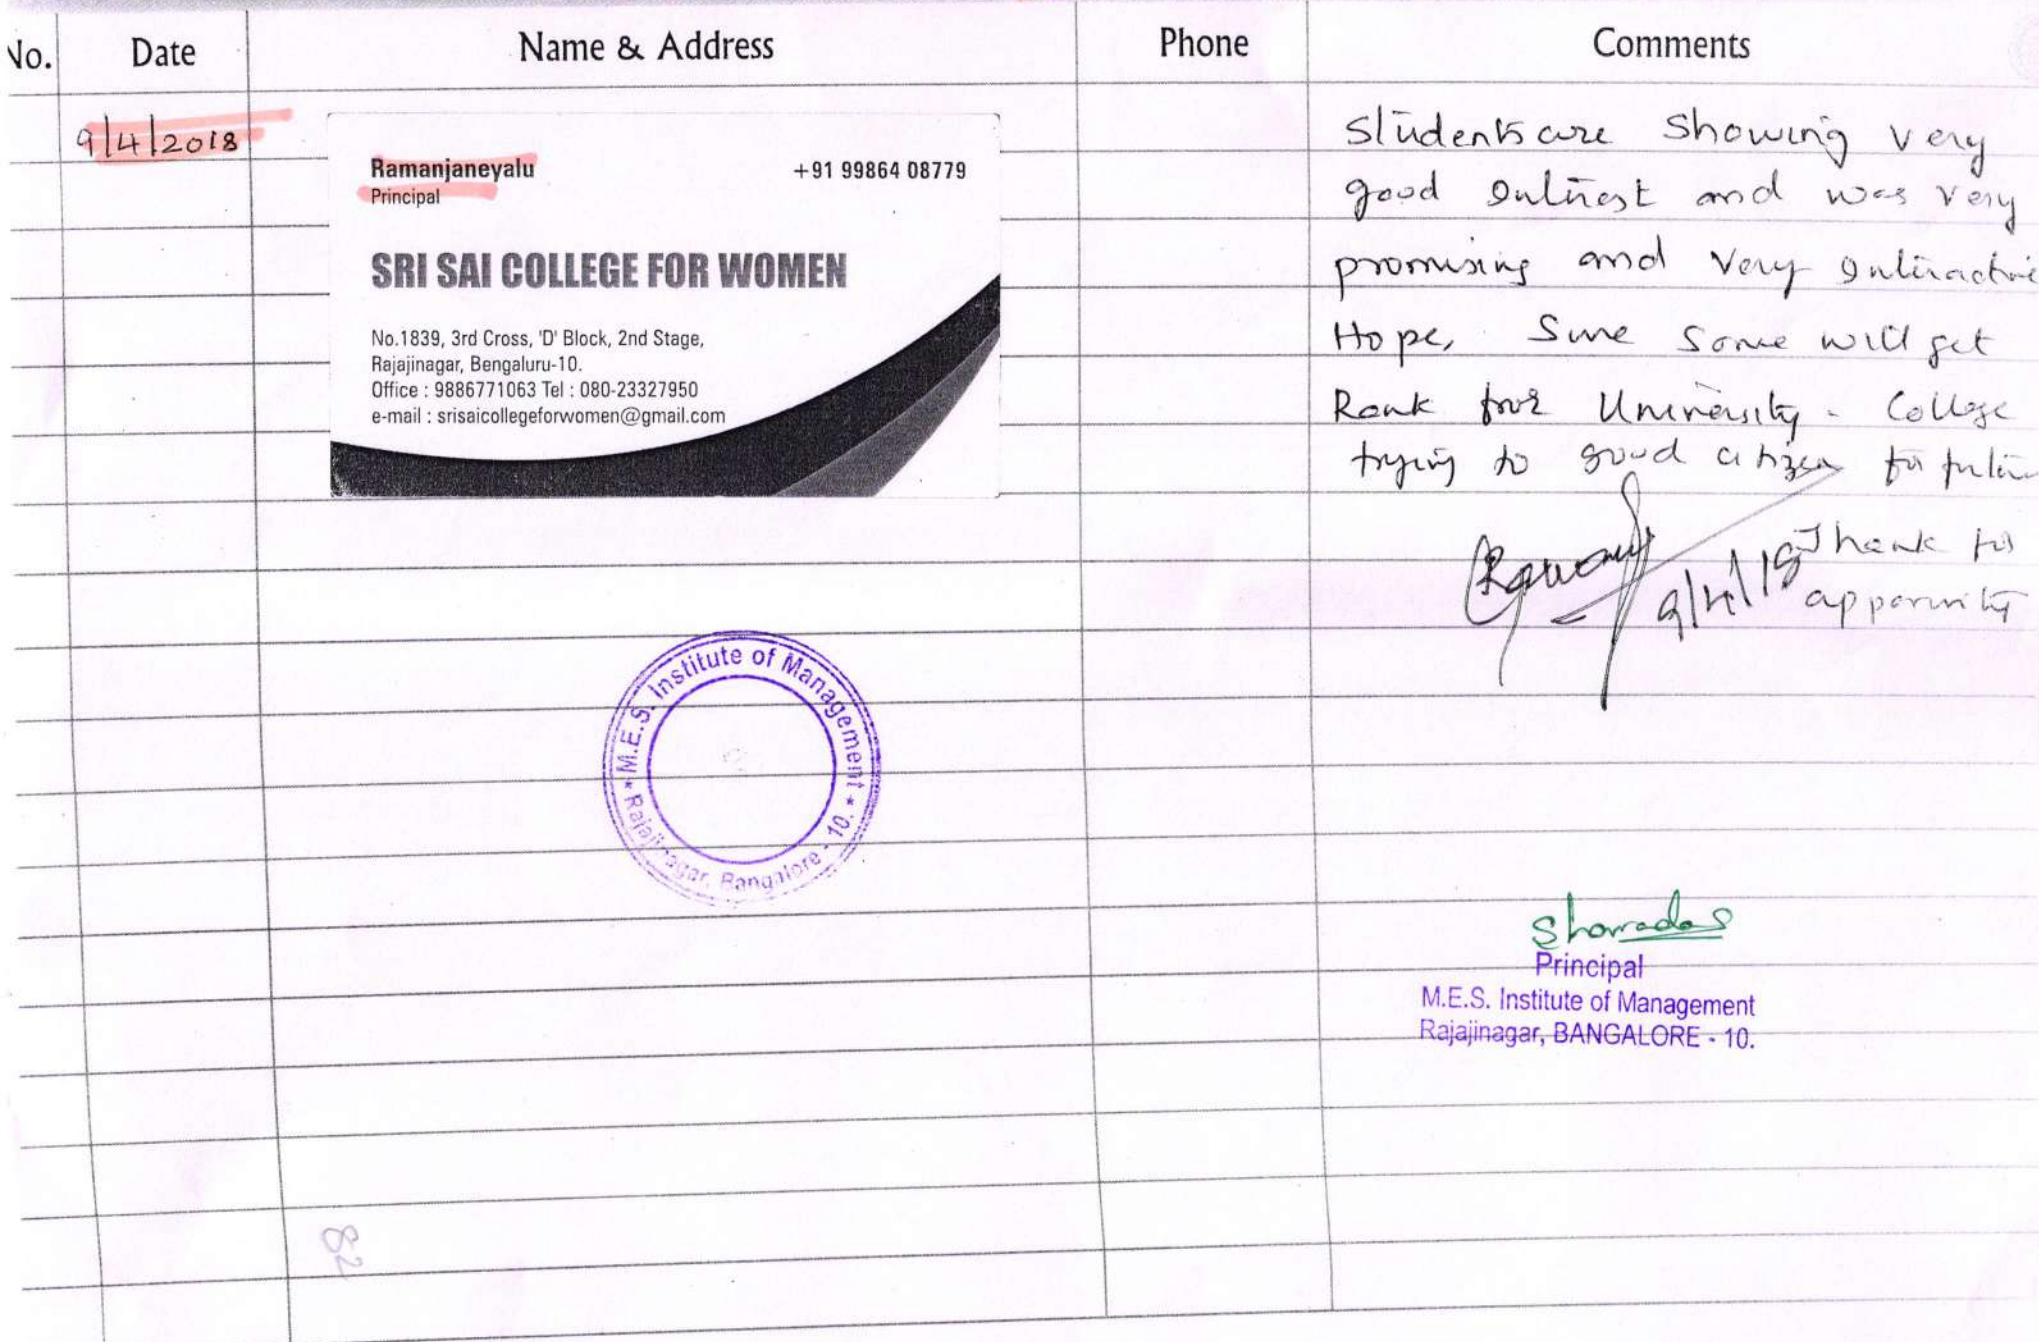 No. Date Name & Address Phone Comments
9/4/2018
Ramanjaneyalu +91 99864 08779
Principal
SRI SAI COLLEGE FOR WOMEN
No.1839, 3rd Cross, 'D' Block, 2nd Stage,
Rajajinagar, Bengaluru-10.
Office : 9886771063 Tel : 080-23327950
e-mail : srisaicollegeforwomen@gmail.com
Students are showing very
good Interest and was very
promising and very Interactive
Hope, Sure Some will get
Rank for University - College
trying to good citizen for future
Thank for
9/4/18 apporunity
M.E.S. Institute of Management
Rajajinagar, Bangalore - 10.
Sharadas
Principal
M.E.S. Institute of Management
Rajajinagar, BANGALORE - 10.
82